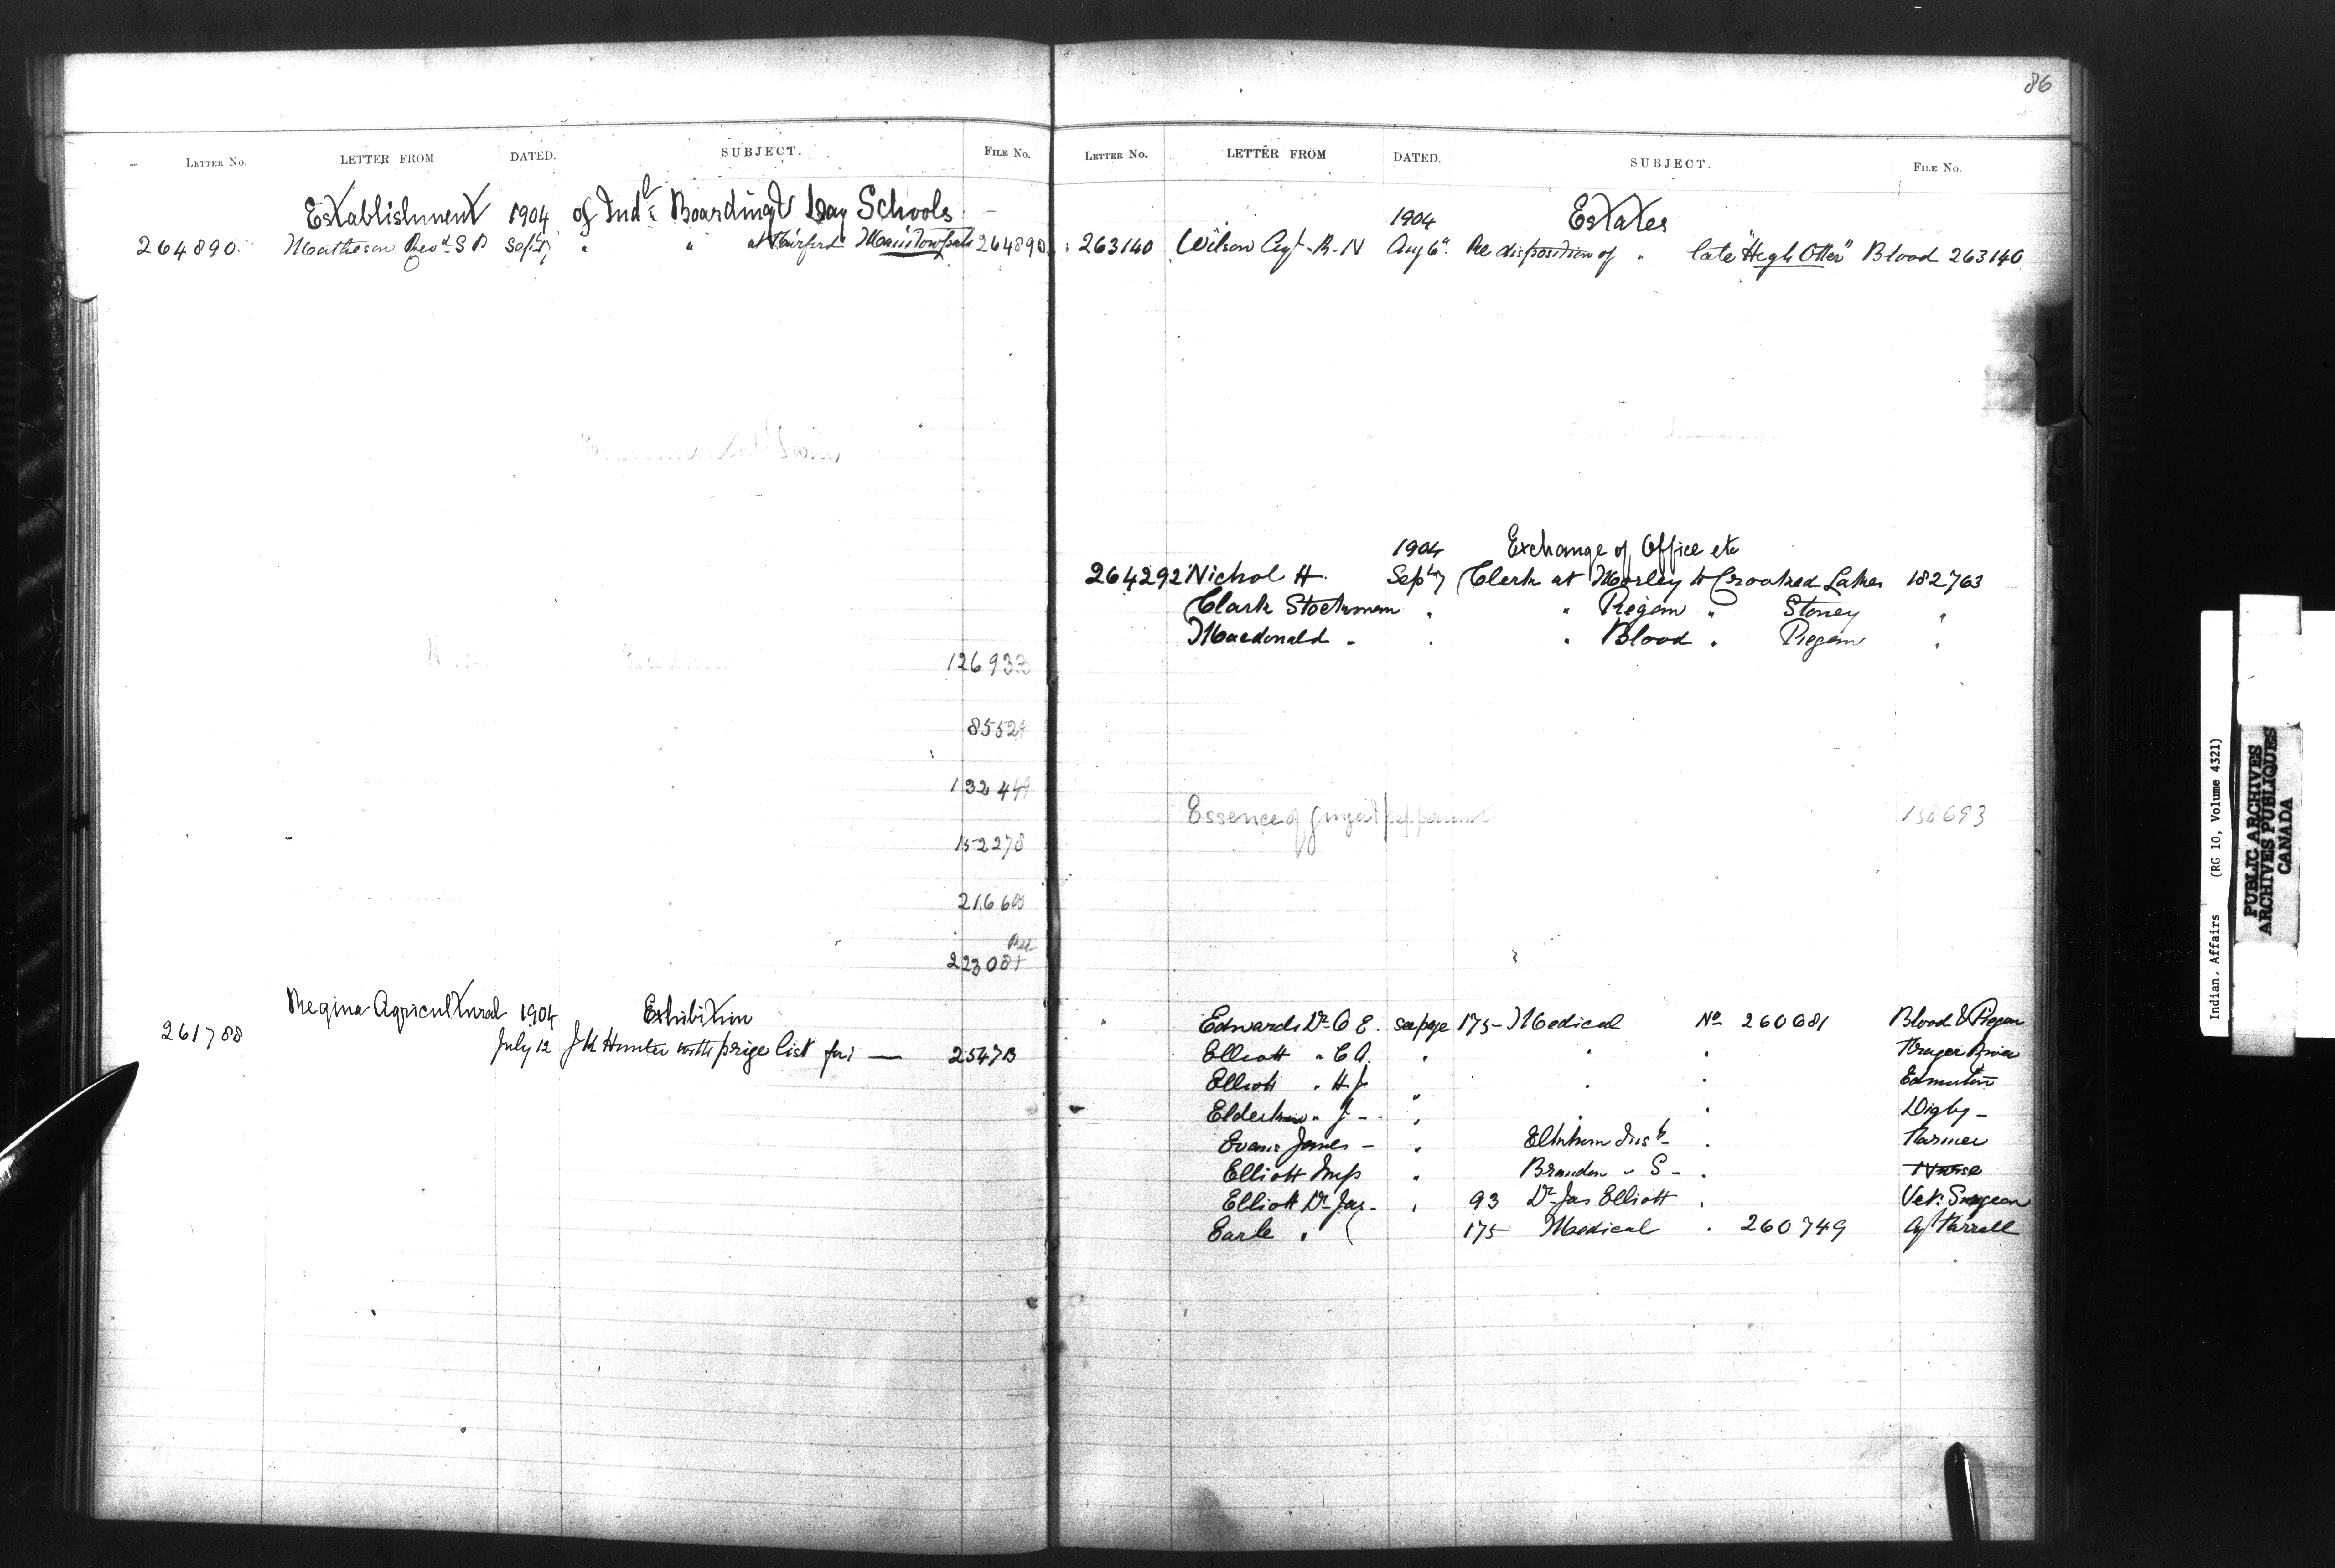 86
LETTER NO. LETTER FROM DATED. SUBJECT. FILE NO.
Establishment 1904 of Indl & Boarding & Day Schools
264890 Matheson Revd S D Sept 17 " " at Fairford 264890
126933
8552
13244
152278
2166
Regina Agricultural 1904 Exhibition
261788 July 12 J K Hunter with prize list for — 2547
LETTER NO. LETTER FROM DATED. SUBJECT. FILE NO.
1904 Estates
263140 Wilson Agt R. N Aug 6" Re disposition of " late "High Otter" Blood 263140
1904 Exchange of Office etc
264292 Nichol H. Sept 7 Clerk at Morley to Crooked Lakes 182763
Clark Stockman " " Piegan " Stoney "
Macdonald " " " Blood " Piegan "
Essence of ginger & peppermint 138693
Edwards Dr O E. see page 175 - Medical No 260681 Blood & Piegan
Elliott " C A. " " "
Elliott " H J " " " Edmonton
" J - " " " Digby -
Evans James - " Elkhorn Inst - " Farmer
Elliott Miss " Brandon " S - " Nurse
Elliott Dr Jas - " 93 Dr Jas Elliott " Vet. Surgeon
Earle " ( 175 Medical " 260749 Agt
Indian Affairs (RG 10, Volume 4321)
PUBLIC ARCHIVES
ARCHIVES PUBLIQUES
CANADA